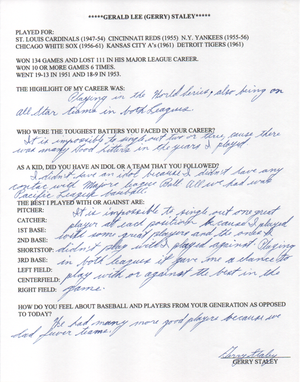 *****GERALD LEE (GERRY) STALEY*****
PLAYED FOR:
ST. LOUIS CARDINALS (1947-54) CINCINNATI REDS (1955) N.Y. YANKEES (1955-56)
CHICAGO WHITE SOX (1956-61) KANSAS CITY A's (1961) DETROIT TIGERS (1961)
WON 134 GAMES AND LOST 111 IN HIS MAJOR LEAGUE CAREER.
WON 10 OR MORE GAMES 6 TIMES.
WENT 19-13 IN 1951 AND 18-9 IN 1953.
THE HIGHLIGHT OF MY CAREER WAS:
Playing in the World Series, also being on
all Star teams in both Leagues.
WHO WERE THE TOUGHEST BATTERS YOU FACED IN YOUR CAREER?
It is impossible to single out two or three, cause there
was many Good hitters in the years I played
AS A KID, DID YOU HAVE AN IDOL OR A TEAM THAT YOU FOLLOWED?
I didn't have an idol because I didn't have any
contac with Majors League Ball All we had was
Pacific League baseball
THE BEST I PLAYED WITH OR AGAINST ARE:
PITCHER: It is impossible to single out one great
CATCHER: player at each position because I played
1ST BASE: with some great players and the ones I
2ND BASE: didn't play with I played against. Playing
SHORTSTOP: in both leagues it gave me a chance to
3RD BASE: play with or against the best in the
LEFT FIELD: game.
CENTERFIELD:
RIGHT FIELD:
HOW DO YOU FEEL ABOUT BASEBALL AND PLAYERS FROM YOUR GENERATION AS OPPOSED
TO TODAY?
We had many more good players because we
had fewer teams.
Gerry Staley
GERRY STALEY